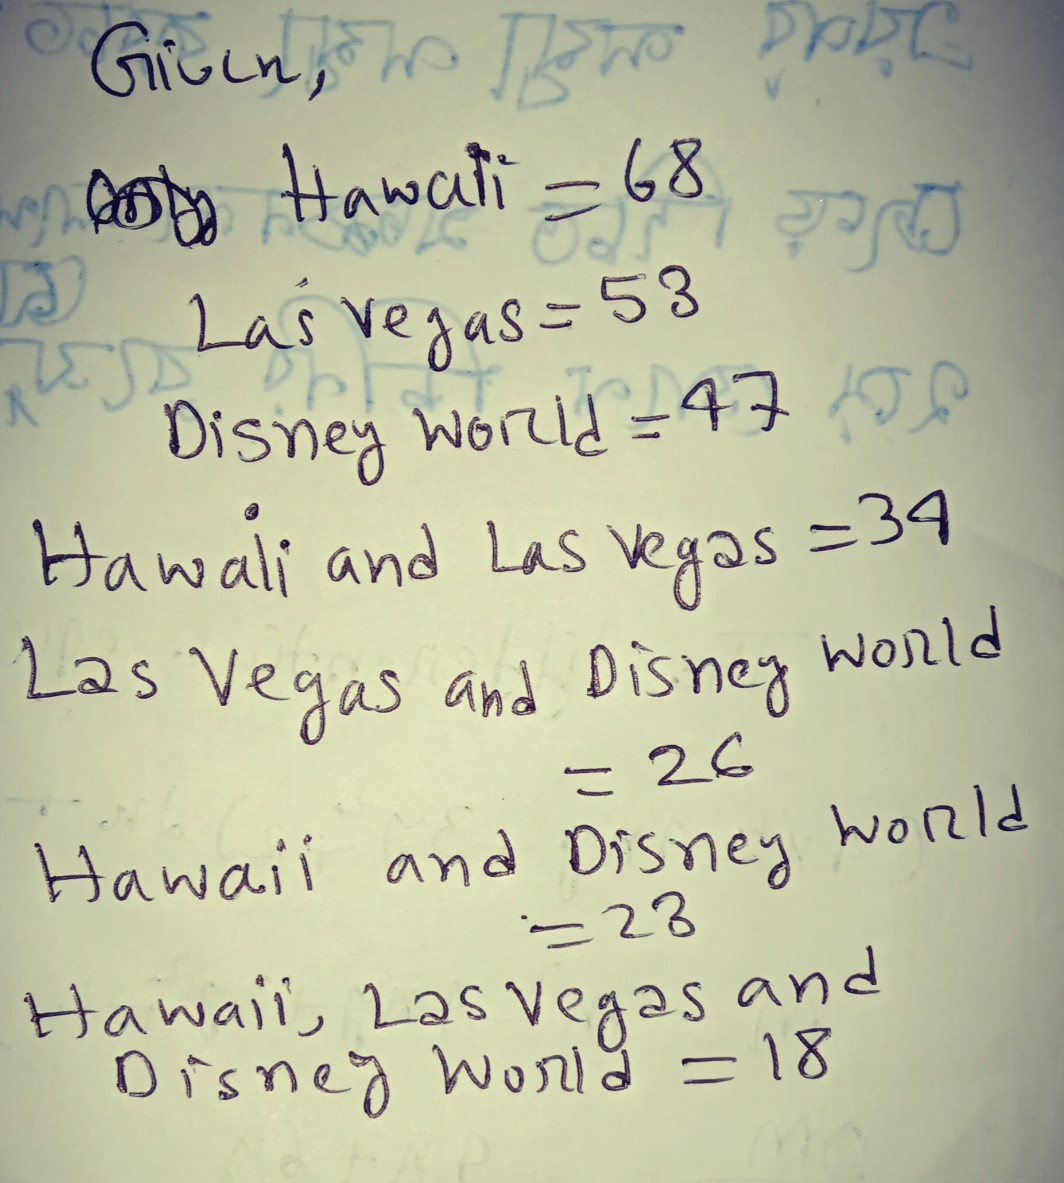 Given,
Hawaii = 68
Las Vegas = 53
Disney World = 47
Hawaii and Las Vegas = 34
Las Vegas and Disney World
= 26
Hawaii and Disney World
= 23
Hawaii, Las Vegas and
Disney World = 18